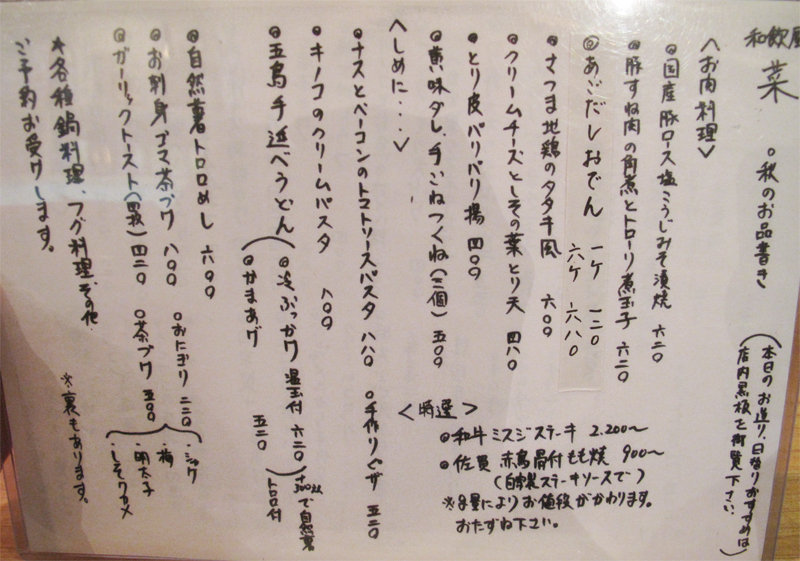 和飲風
菜
○秋のお品書き
(本日のお造り、日替りおすすめは
店内黒板を御覧下さい。)
<お肉料理>
◎国産豚ロース塩こうじみそ漬焼 六二〇
◎豚すね肉の角煮とトローリ煮玉子 六二〇
◎あごだしおでん 一ケ 一二〇
六ケ 六八〇
◎さつま地鶏のタタキ風 六〇〇
◎クリームチーズとしその葉とり天 四八〇
◎とり皮パリパリ揚 四〇〇
◎黄味ダレ、手ごねつくね(三個) 五〇〇
<しめに・・・>
◎ナスとベーコンのトマトソースパスタ 八八〇 ○手作りピザ 五二〇
◎キノコのクリームパスタ 八〇〇
◎五島手延べうどん
◎冷ぶっかけ 温玉付 六二〇
◎かまあげ 五二〇
+300以で自然薯
トロロ付
◎自然薯トロロめし 六〇〇
◎お刺身ゴマ茶ヅケ 八〇〇 ○おにぎり 二二〇
◎ガーリックトースト(四枚) 四二〇 ○茶ヅケ 五〇〇
・シャケ
・梅
・明太子
・しそワカメ
*各種鍋料理、フグ料理、その他
ご予約お受けします。
※裏もあります。
<特選>
◎和牛ミスジステーキ 2,200〜
◎佐賀 赤鳥骨付もも焼 900〜
(自家製ステーキソースで)
※g量によりお値段がかわります。
おたずね下さい。